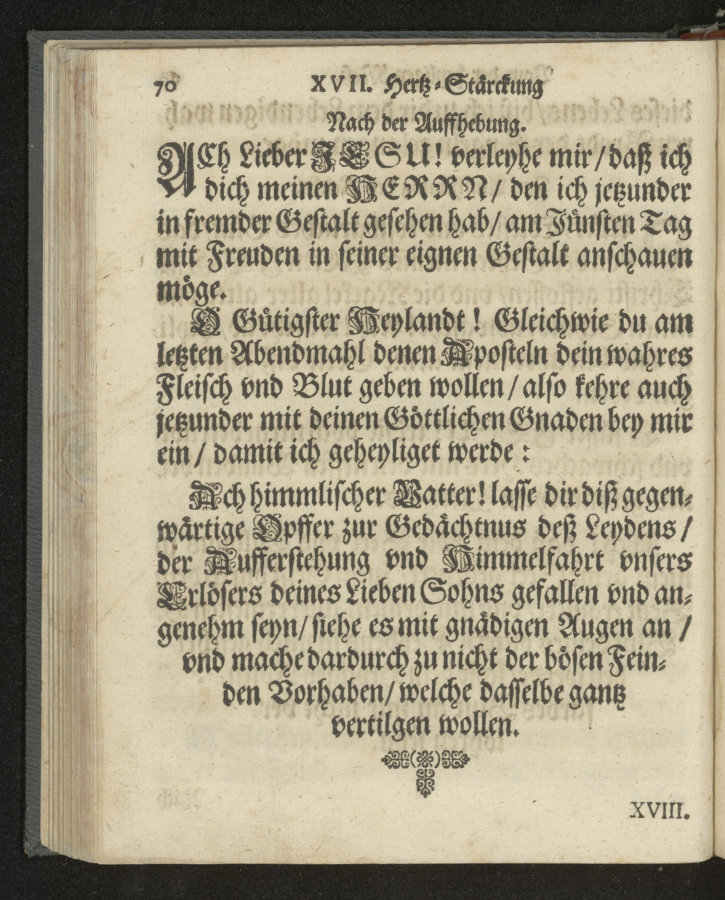 70 XVII. Hertz-Stärckung
Nach der Auffhebung.
ACh Lieber JESU! verleyhe mir/ daß ich
dich meinen HERRN/ den ich jetzunder
in fremder Gestalt gesehen hab/ am Jünsten Tag
mit Freuden in seiner eignen Gestalt anschauen
möge.
O Gütigster Heylandt! Gleichwie du am
letzten Abendmahl denen Aposteln dein wahres
Fleisch vnd Blut geben wollen/ also kehre auch
jetzunder mit deinen Göttlichen Gnaden bey mir
ein/ damit ich geheyliget werde:
Ach himmlischer Vatter! lasse dir diß gegen-
wärtige Opffer zur Gedächtnus deß Leydens/
der Aufferstehung vnd Himmelfahrt vnsers
Erlösers deines Lieben Sohns gefallen vnd an-
genehm seyn/ siehe es mit gnädigen Augen an/
vnd mache dardurch zu nicht der bösen Fein-
den Vorhaben/ welche dasselbe gantz
vertilgen wollen.
XVIII.